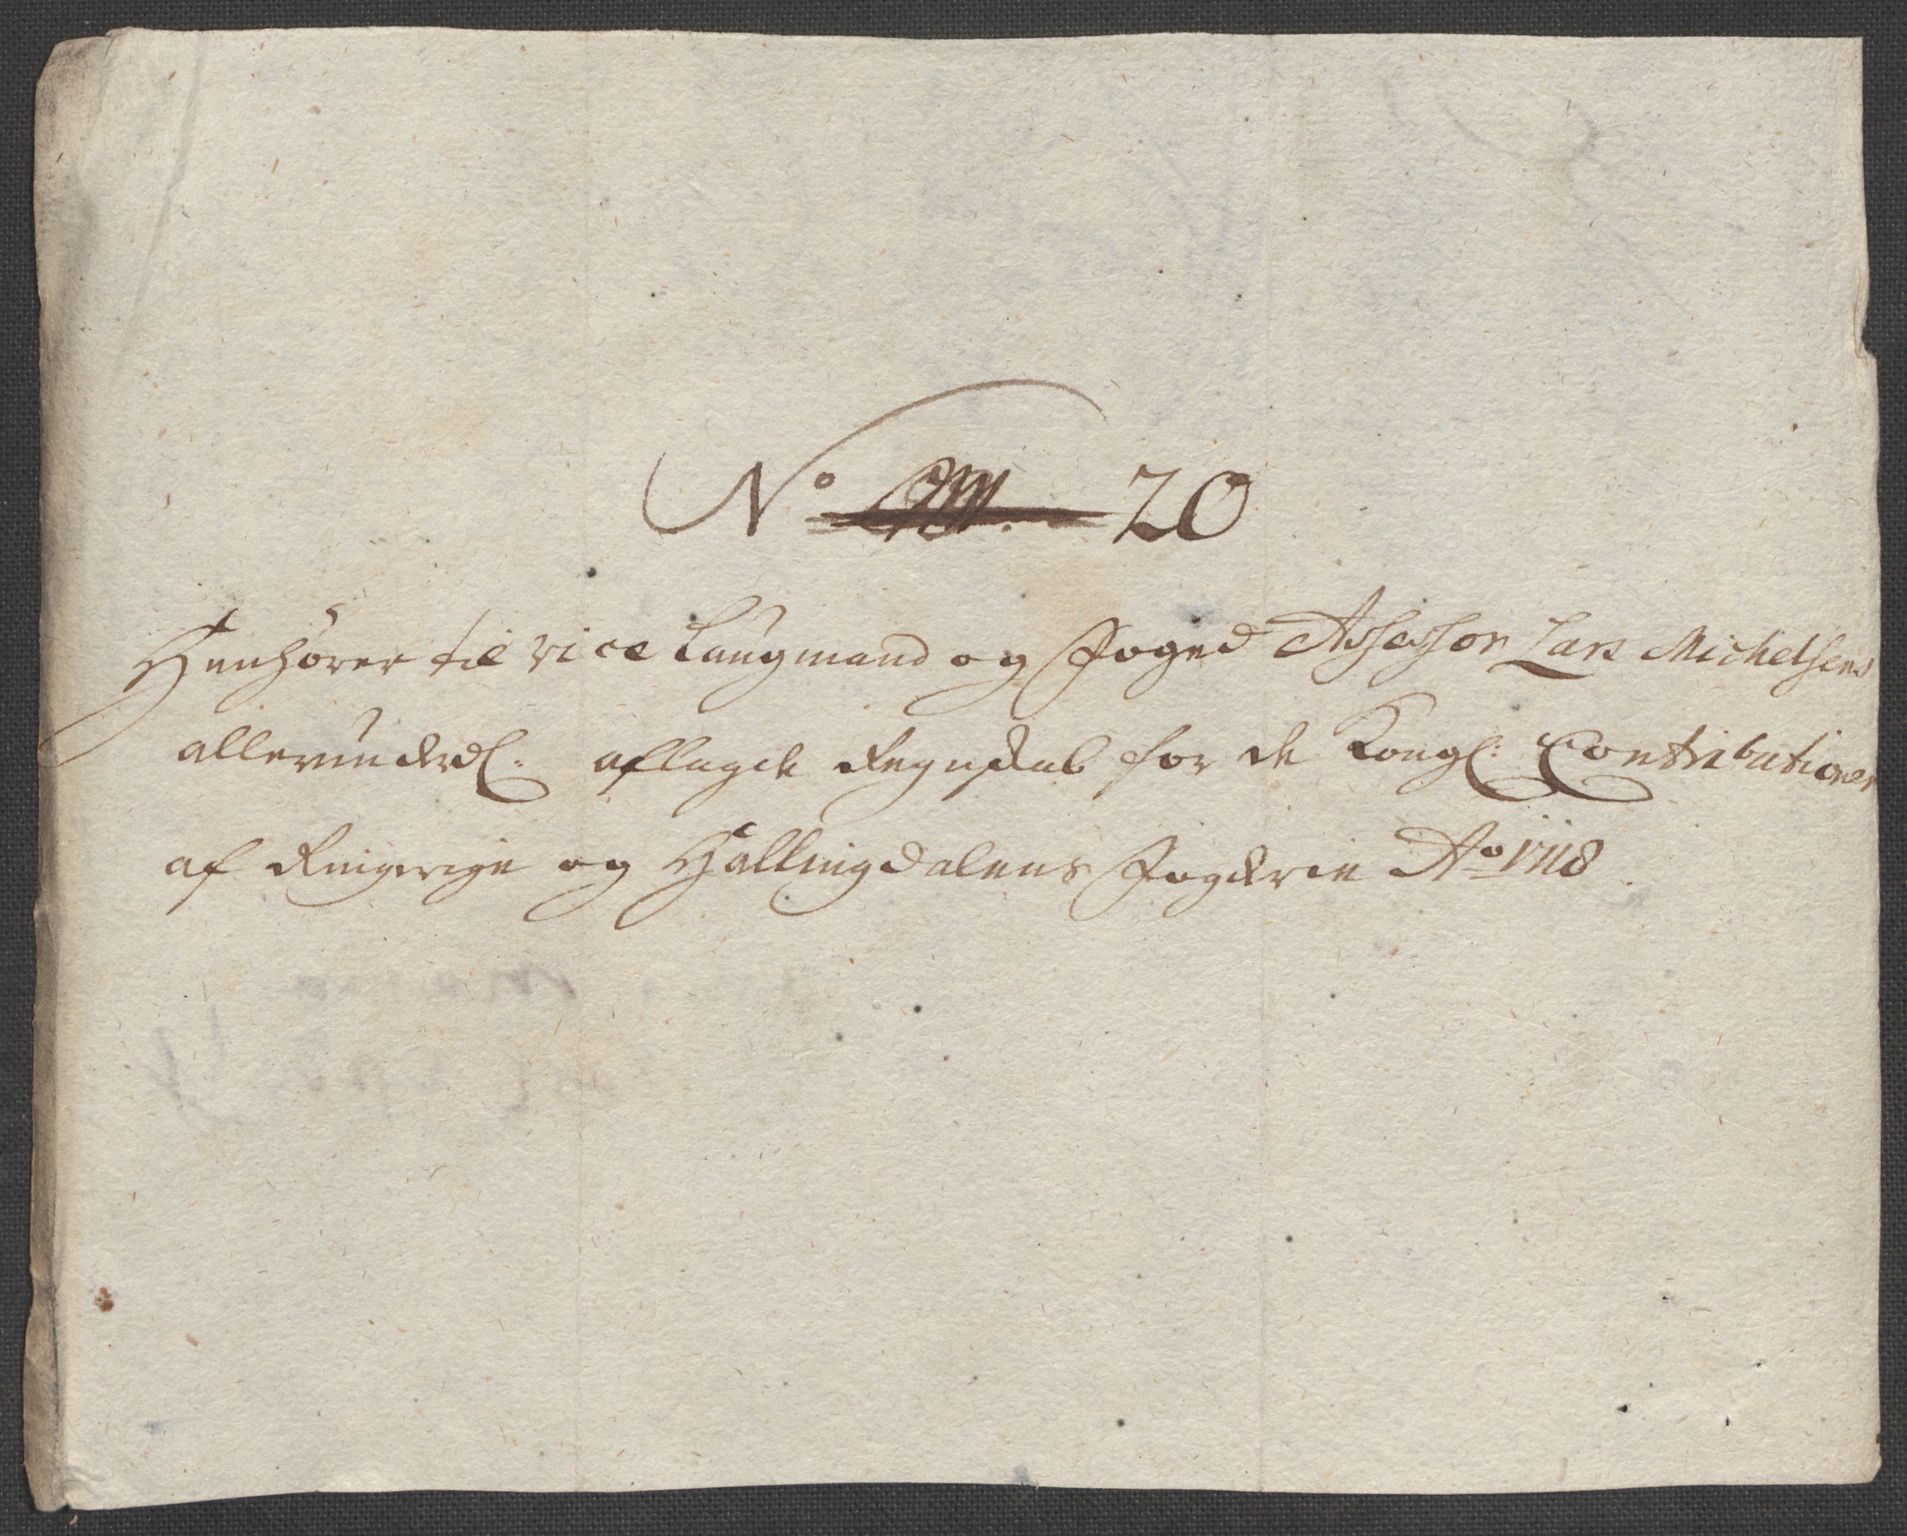 No 20
Henhører til vice Laugmand og Foged Assessor Lars Michelsens
allerunderdl: aflagde Regnskab for de Kongl: Contributioner
af Ringerige og Hallingdalens Fogderie Ao 1718